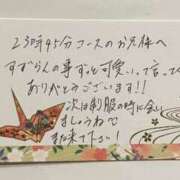 23時45分コースのお兄様へ
すずらんの事ずっと可愛いって言ってくれて
ありがとうございます!!
次は制服の時に会い
ましょうねで
また来て下さい!